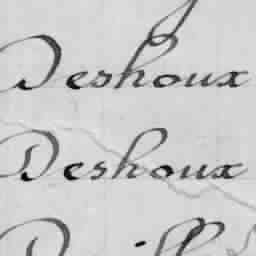 Deshoux
Deshoux